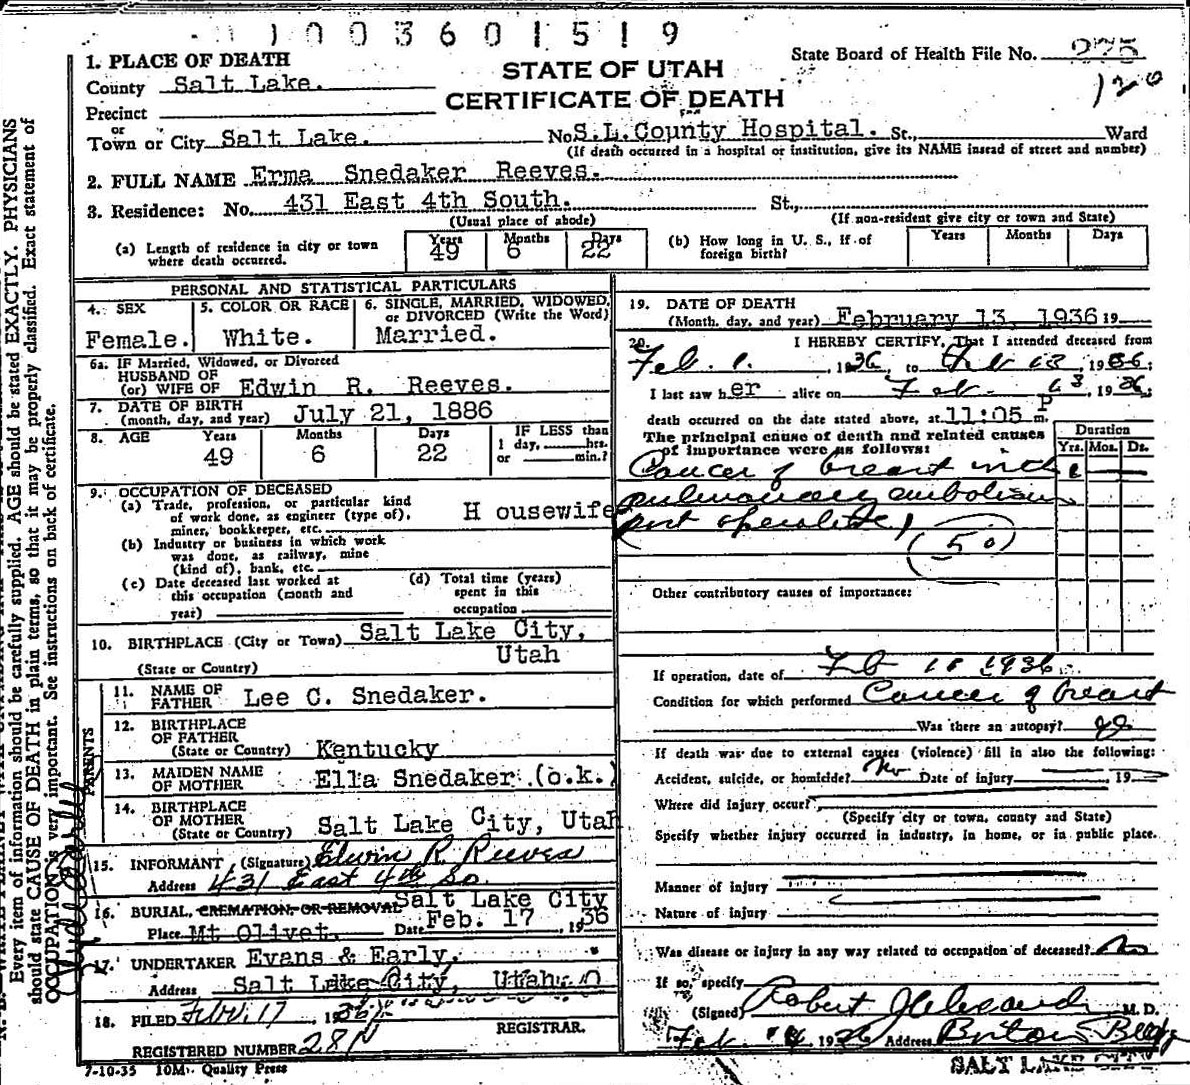 1003601519
State Board of Health File No. 275
120
STATE OF UTAH
CERTIFICATE OF DEATH
1. PLACE OF DEATH
County Salt Lake.
Precinct
or
Town or City Salt Lake. No. S.L.County Hospital. St., Ward
(If death occurred in a hospital or institution, give its NAME instead of street and number)
2. FULL NAME Erma Snedaker Reeves.
3. Residence: No. 431 East 4th South. St.,
(Usual place of abode) (If non-resident give city or town and State)
(a) Length of residence in city or town where death occurred. Years 49 Months 6 Days 22
(b) How long in U. S., if of foreign birth? Years Months Days
PERSONAL AND STATISTICAL PARTICULARS
4. SEX 5. COLOR OR RACE 6. SINGLE, MARRIED, WIDOWED,
or DIVORCED (Write the Word)
Female. White. Married.
6a. IF Married, Widowed, or Divorced
HUSBAND OF
(or) WIFE OF Edwin R. Reeves.
7. DATE OF BIRTH
(month, day, and year) July 21, 1886
8. AGE Years Months Days IF LESS than
1 day, hrs.
49 6 22 or min.?
9. OCCUPATION OF DECEASED
(a) Trade, profession, or particular kind
of work done, as engineer (type of), H ousewife
miner, bookkeeper, etc.
(b) Industry or business in which work
was done, as railway, mine
(kind of), bank, etc.
(c) Date deceased last worked at
this occupation (month and
year)
(d) Total time (years)
spent in this
occupation
10. BIRTHPLACE (City or Town) Salt Lake City,
(State or Country) Utah
PARENTS
11. NAME OF
FATHER Lee C. Snedaker.
12. BIRTHPLACE
OF FATHER
(State or Country) Kentucky
13. MAIDEN NAME
OF MOTHER Ella Snedaker (o.k.)
14. BIRTHPLACE
OF MOTHER
(State or Country) Salt Lake City, Utah
15. INFORMANT (Signature) Edwin R Reeves
Address 431 East 4th So
16. BURIAL, CREMATION, OR REMOVAL Salt Lake City
Place Mt Olivet. Date Feb. 17, 1936
17. UNDERTAKER Evans & Early.
Address Salt Lake City, Utah
18. FILED Feb. 17 1936
REGISTRAR.
REGISTERED NUMBER 281
7-10-35 10M. Quality Press
19. DATE OF DEATH
(Month, day, and year) February 13, 1936 19
20. I HEREBY CERTIFY, That I attended deceased from
Feb. 1. , 1936, to Feb 13, 1936;
I last saw her alive on Feb. 13, 1936;
death occurred on the date stated above, at 11:05 P m.
The principal cause of death and related causes
of importance were as follows:
Duration
Yrs. Mos. Ds.
Cancer of breast with
pulmonary embolism
post operative
(50)
Other contributory causes of importance:
If operation, date of Feb 1936
Condition for which performed Cancer of breast
Was there an autopsy?
If death was due to external causes (violence) fill in also the following:
Accident, suicide, or homicide? No Date of injury , 19
Where did injury occur?
(Specify city or town, county and State)
Specify whether injury occurred in industry, in home, or in public place.
Manner of injury
Nature of injury
Was disease or injury in any way related to occupation of deceased? No
If so, specify
(Signed) Robert M. D.
Feb. 1936 Address
SALT LAKE CITY
Every item of information should be carefully supplied. AGE should be stated EXACTLY. PHYSICIANS
should state CAUSE OF DEATH in plain terms, so that it may be properly classified. Exact statement of
OCCUPATION is very important. See instructions on back of certificate.